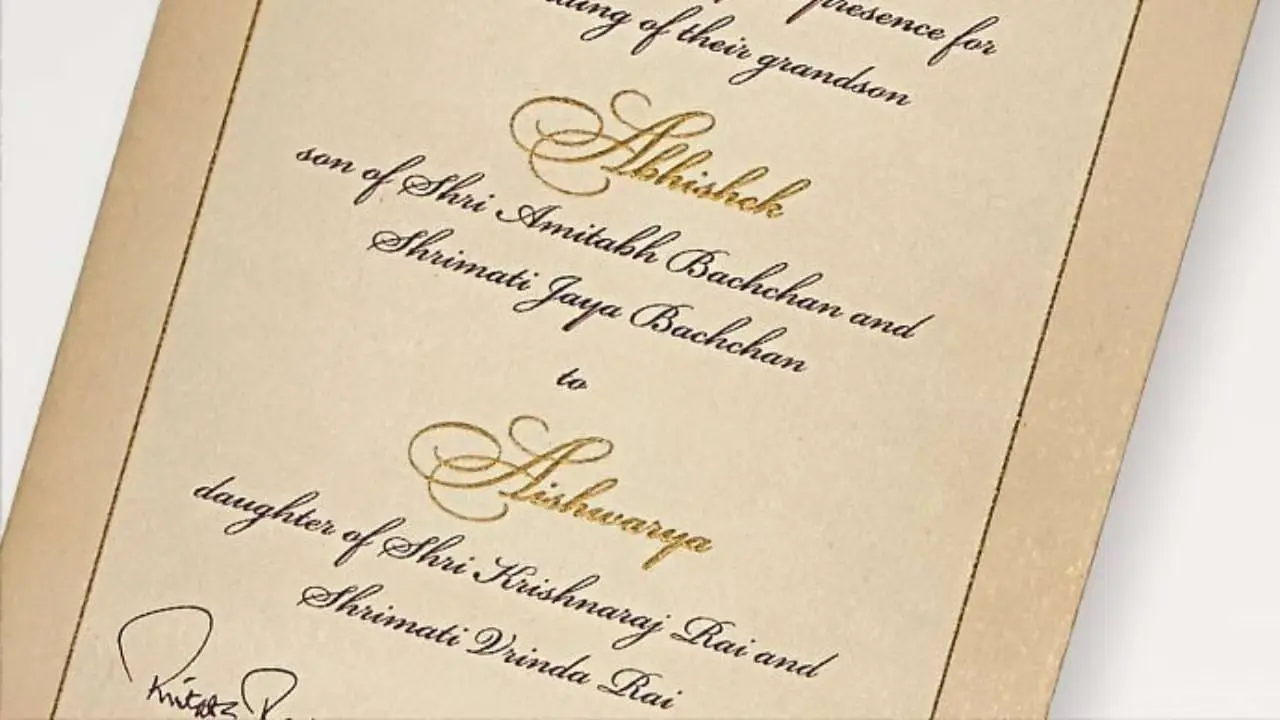 presence for
of their grandson
Abhishek
son of Shri Amitabh Bachchan and
Shrimati Jaya Bachchan
to
Aishwarya
daughter of Shri Krishnaraj Rai and
Shrimati Vrinda Rai